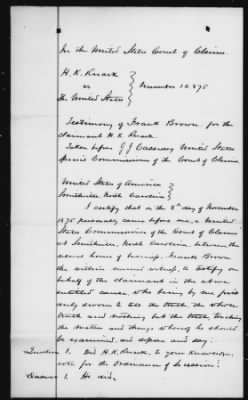 In the United States Court of Claims
H. K. Ruark
vs
The United States
Number 10.875
Testimony of Frank Brown for the
claimant H. K. Ruark
Taken before J. J. United States
Special Commissioner of the Court of Claims
United States of America
Smithville North Carolina
I certify that on the 8th day of November
1875 personally came before me, a United
States Commissioner of the Court of Claims
at Smithville, North Carolina, between the
usual hours of business Frank Brown
the within named witness, to testify on
behalf of the claimant in the above
entitled cause, who being by me first
duly sworn to tell the truth the whole
truth and nothing but the truth touching
the matter and things whereof he should
be examined, did depose and say:
Question 1. Did H. K. Ruark, to your knowledge,
vote for the ordinance of Secession?
Answer 1. He did.